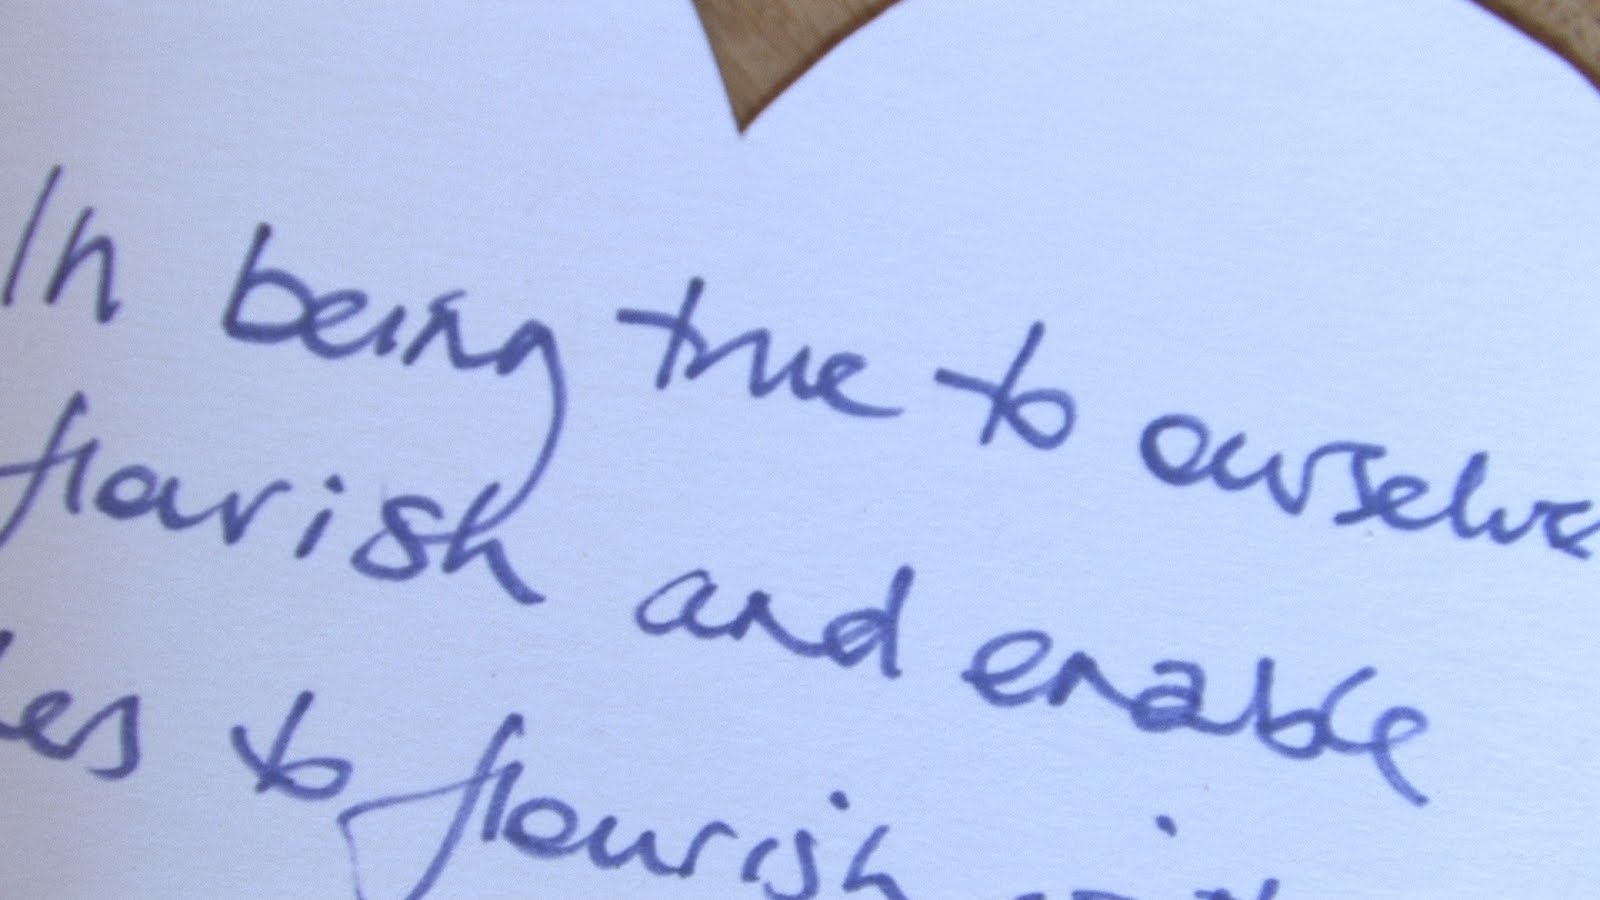 In being true to ourselve
flourish and enable
es to flourish